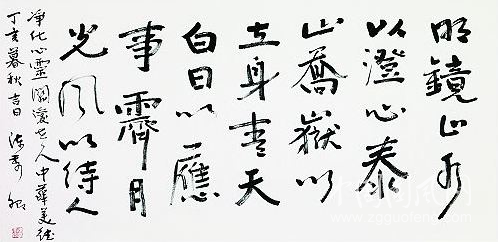 明鏡止水
以澄心泰
山喬嶽以
立身青天
白日以應
事霽月
光风以待人
净化心靈關愛世人中華美德
丁亥暮秋吉日
中国国风网
www.zgguofeng.com